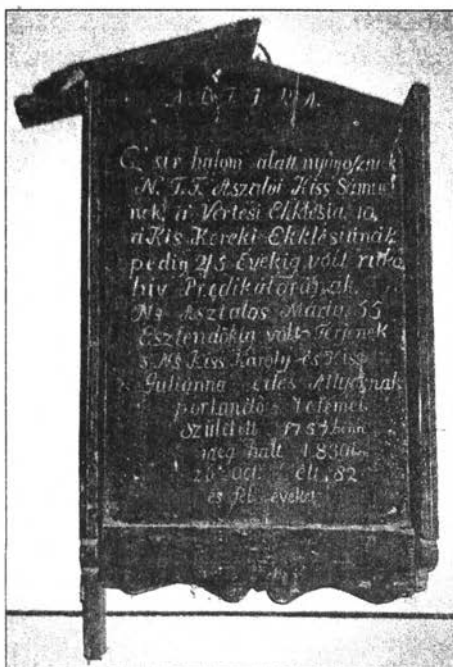 A. B. F. R. A.
E' sír halom alatt nyúgosznak
N. T. T. Aszalói Kiss Sámuel
nek, a' Vértesi Ekklésia 10,
a Kis Kereki Ekklésiának
pedig 45 Évekig vólt ritka
hív Prédikátorának,
Ns Asztalos Mária 55
Esztendőkig vólt Férjének
s Ns Kiss Károly és Kiss
Julianna édes Attyoknak
porlandó Tetemei
Született
meg halt 1830
26 Oct. élt 82
és fél éveket